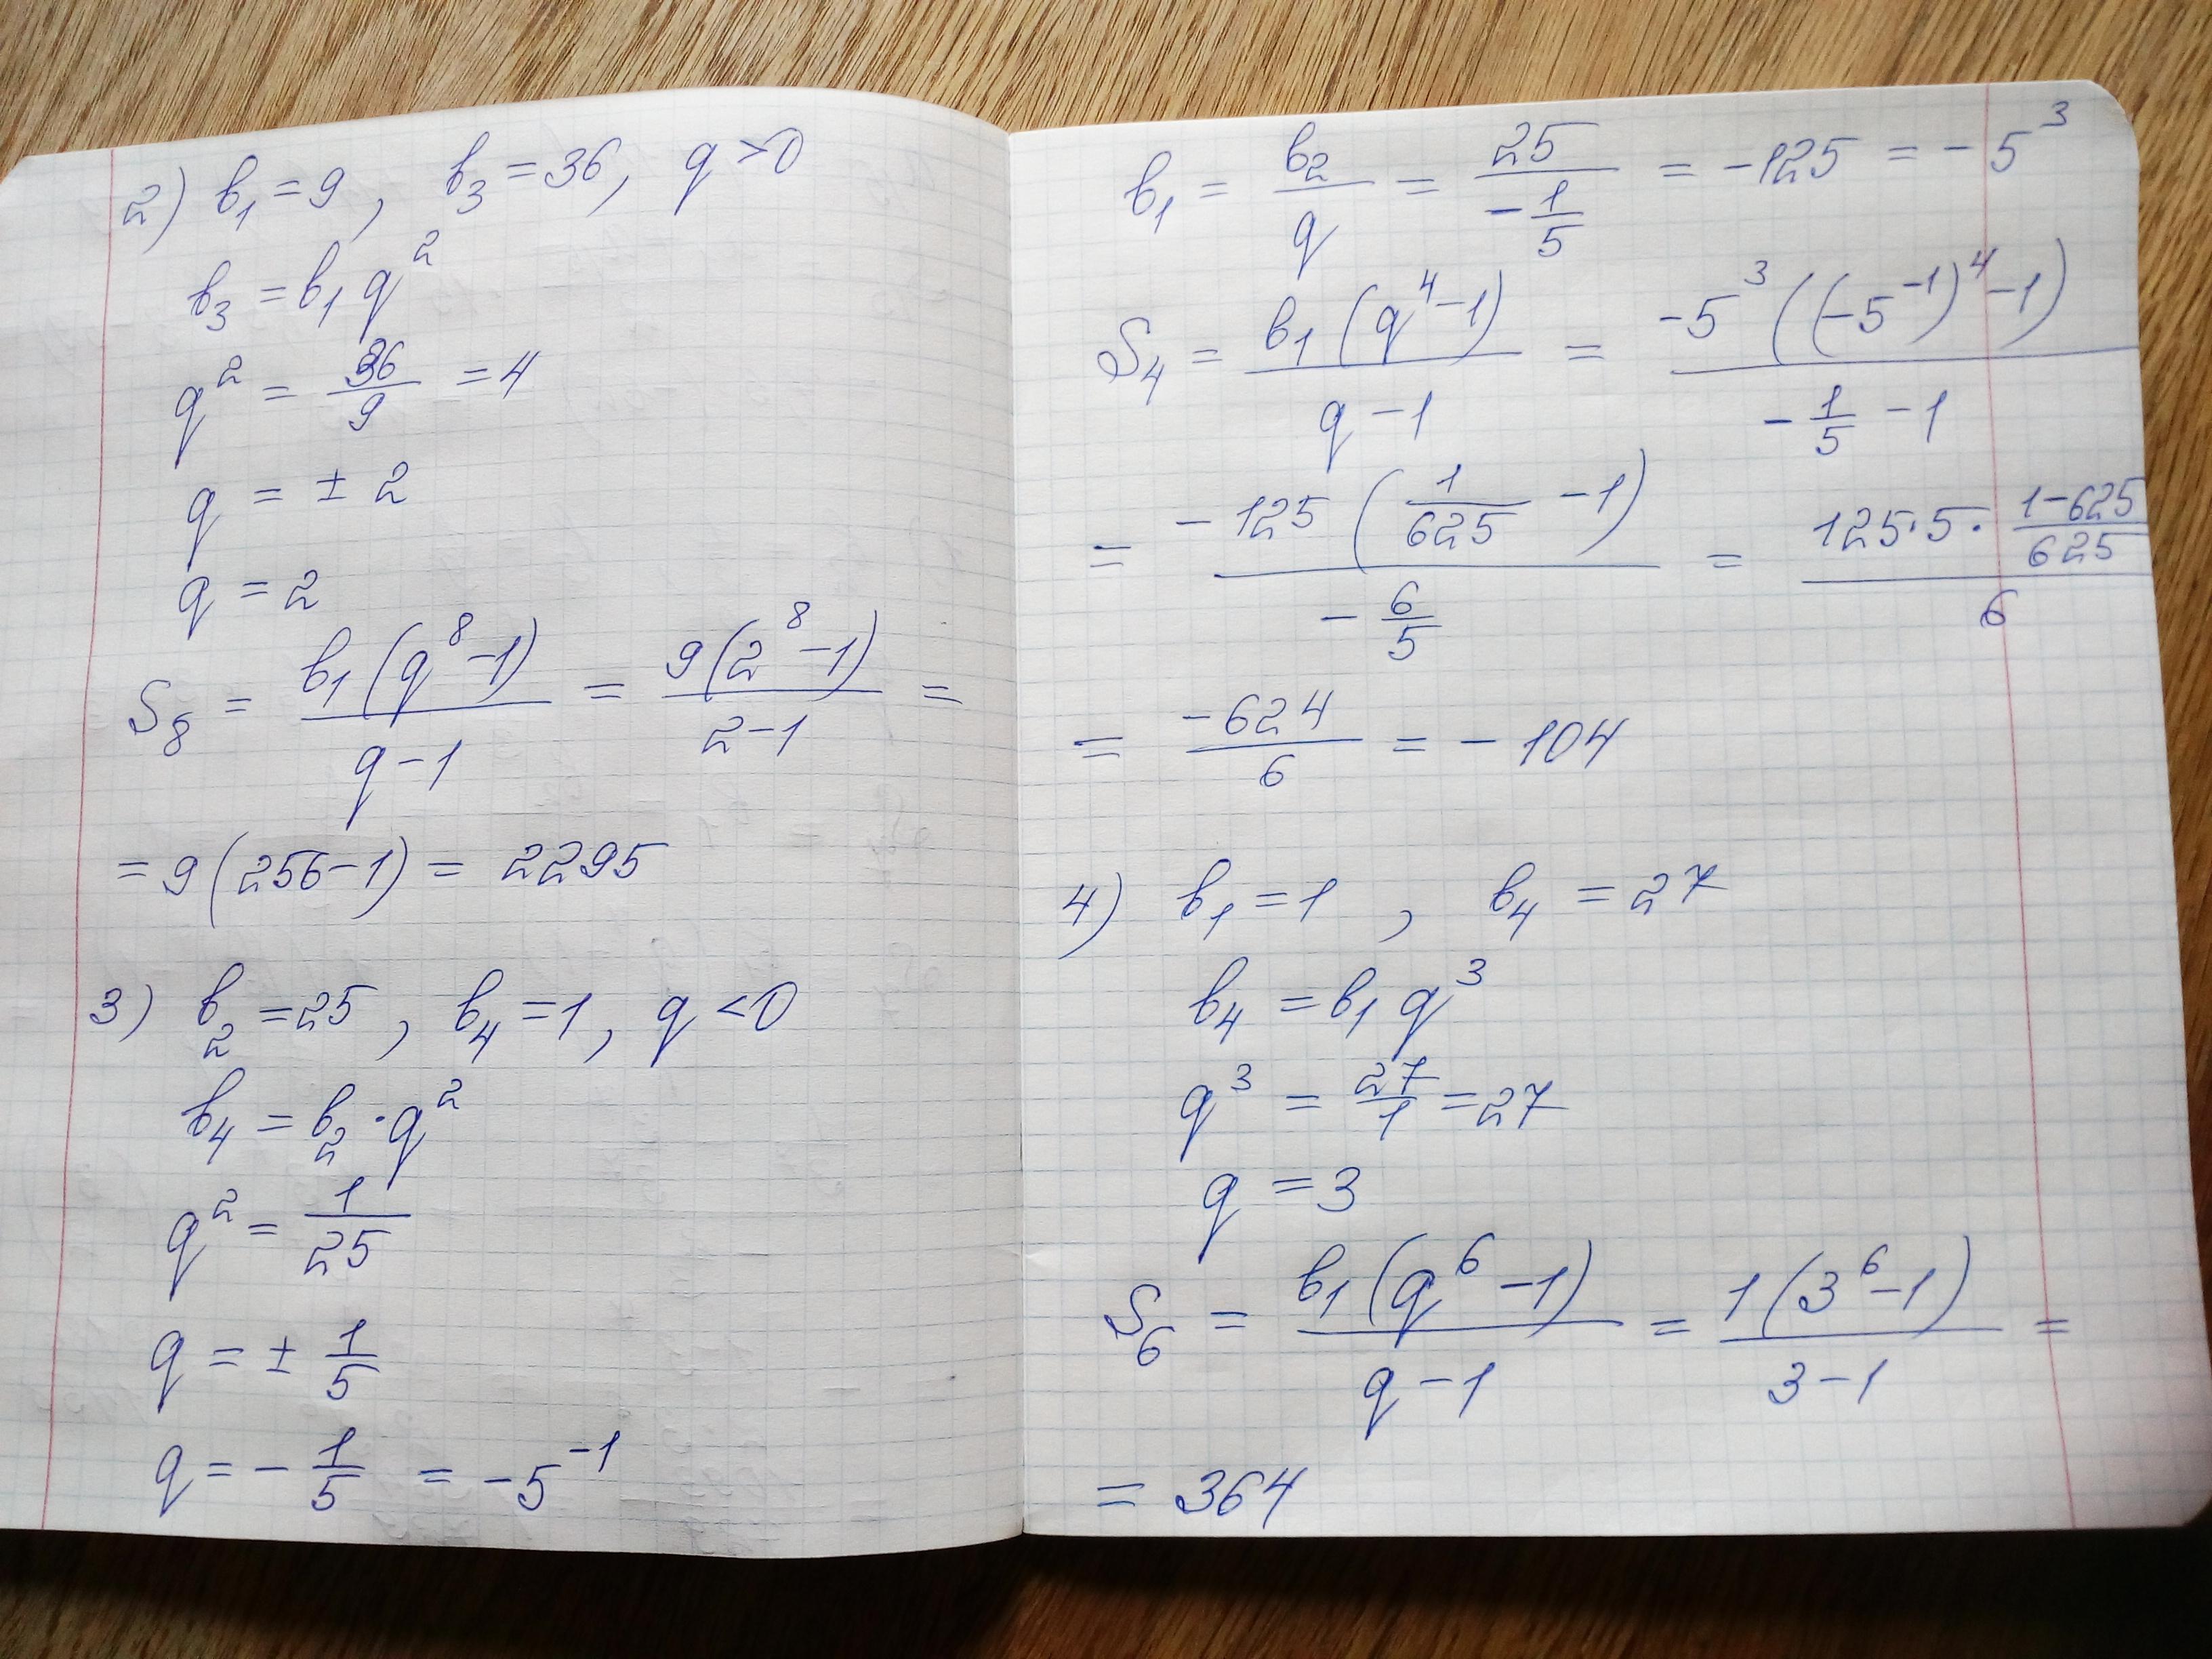 2) b₁ = 9, b₃ = 36, q > 0
b₃ = b₁ q²
q² = 36/9 = 4
q = ± 2
q = 2
S₈ = b₁(q⁸ - 1)/(q - 1) = 9(2⁸ - 1)/(2 - 1) =
= 9(256 - 1) = 2295
3) b₂ = 25, b₄ = 1, q < 0
b₄ = b₂ · q²
q² = 1/25
q = ± 1/5
q = - 1/5 = -5⁻¹
b₁ = b₂/q = 25/(-1/5) = -125 = -5³
S₄ = b₁(q⁴ - 1)/(q - 1) = -5³((-5⁻¹)⁴ - 1)/(-1/5 - 1)
= -125(1/625 - 1)/(-6/5) = (125·5·(1-625)/625)/6
= -624/6 = -104
4) b₁ = 1, b₄ = 27
b₄ = b₁ q³
q³ = 27/1 = 27
q = 3
S₆ = b₁(q⁶ - 1)/(q - 1) = 1(3⁶ - 1)/(3 - 1) =
= 364